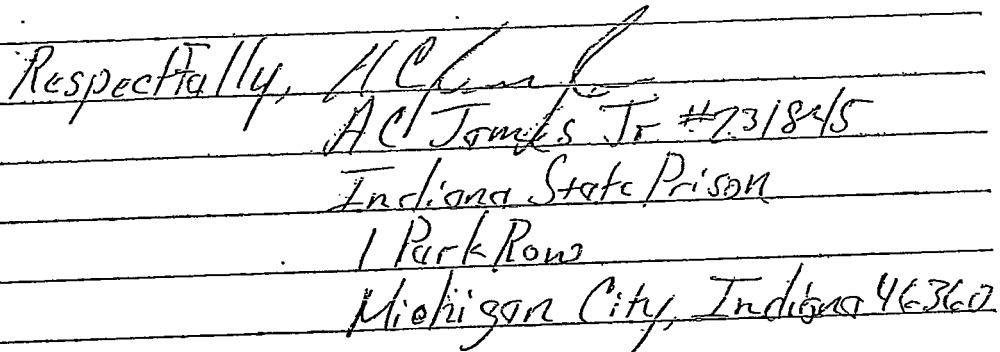 Respectfully,
AC Jomes Jr #231845
Indiana State Prison
1 Park Row
Michigan City, Indiana 46360